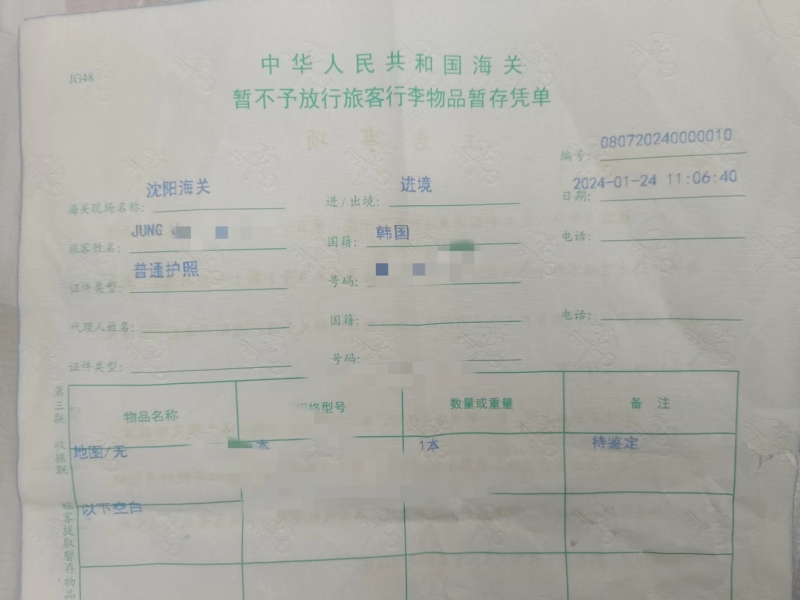 JG48
中华人民共和国海关
暂不予放行旅客行李物品暂存凭单
编号: 080720240000010
海关现场名称: 沈阳海关 进/出境: 进境 日期: 2024-01-24 11:06:40
旅客姓名: JUNG 国籍: 韩国 电话:
证件类型: 普通护照 号码:
代理人姓名: 国籍: 电话:
证件类型: 号码:
物品名称 格型号 数量或重量 备 注
地图/无 1本 待鉴定
以下空白
第三联 收据联
旅客提取暂存物品